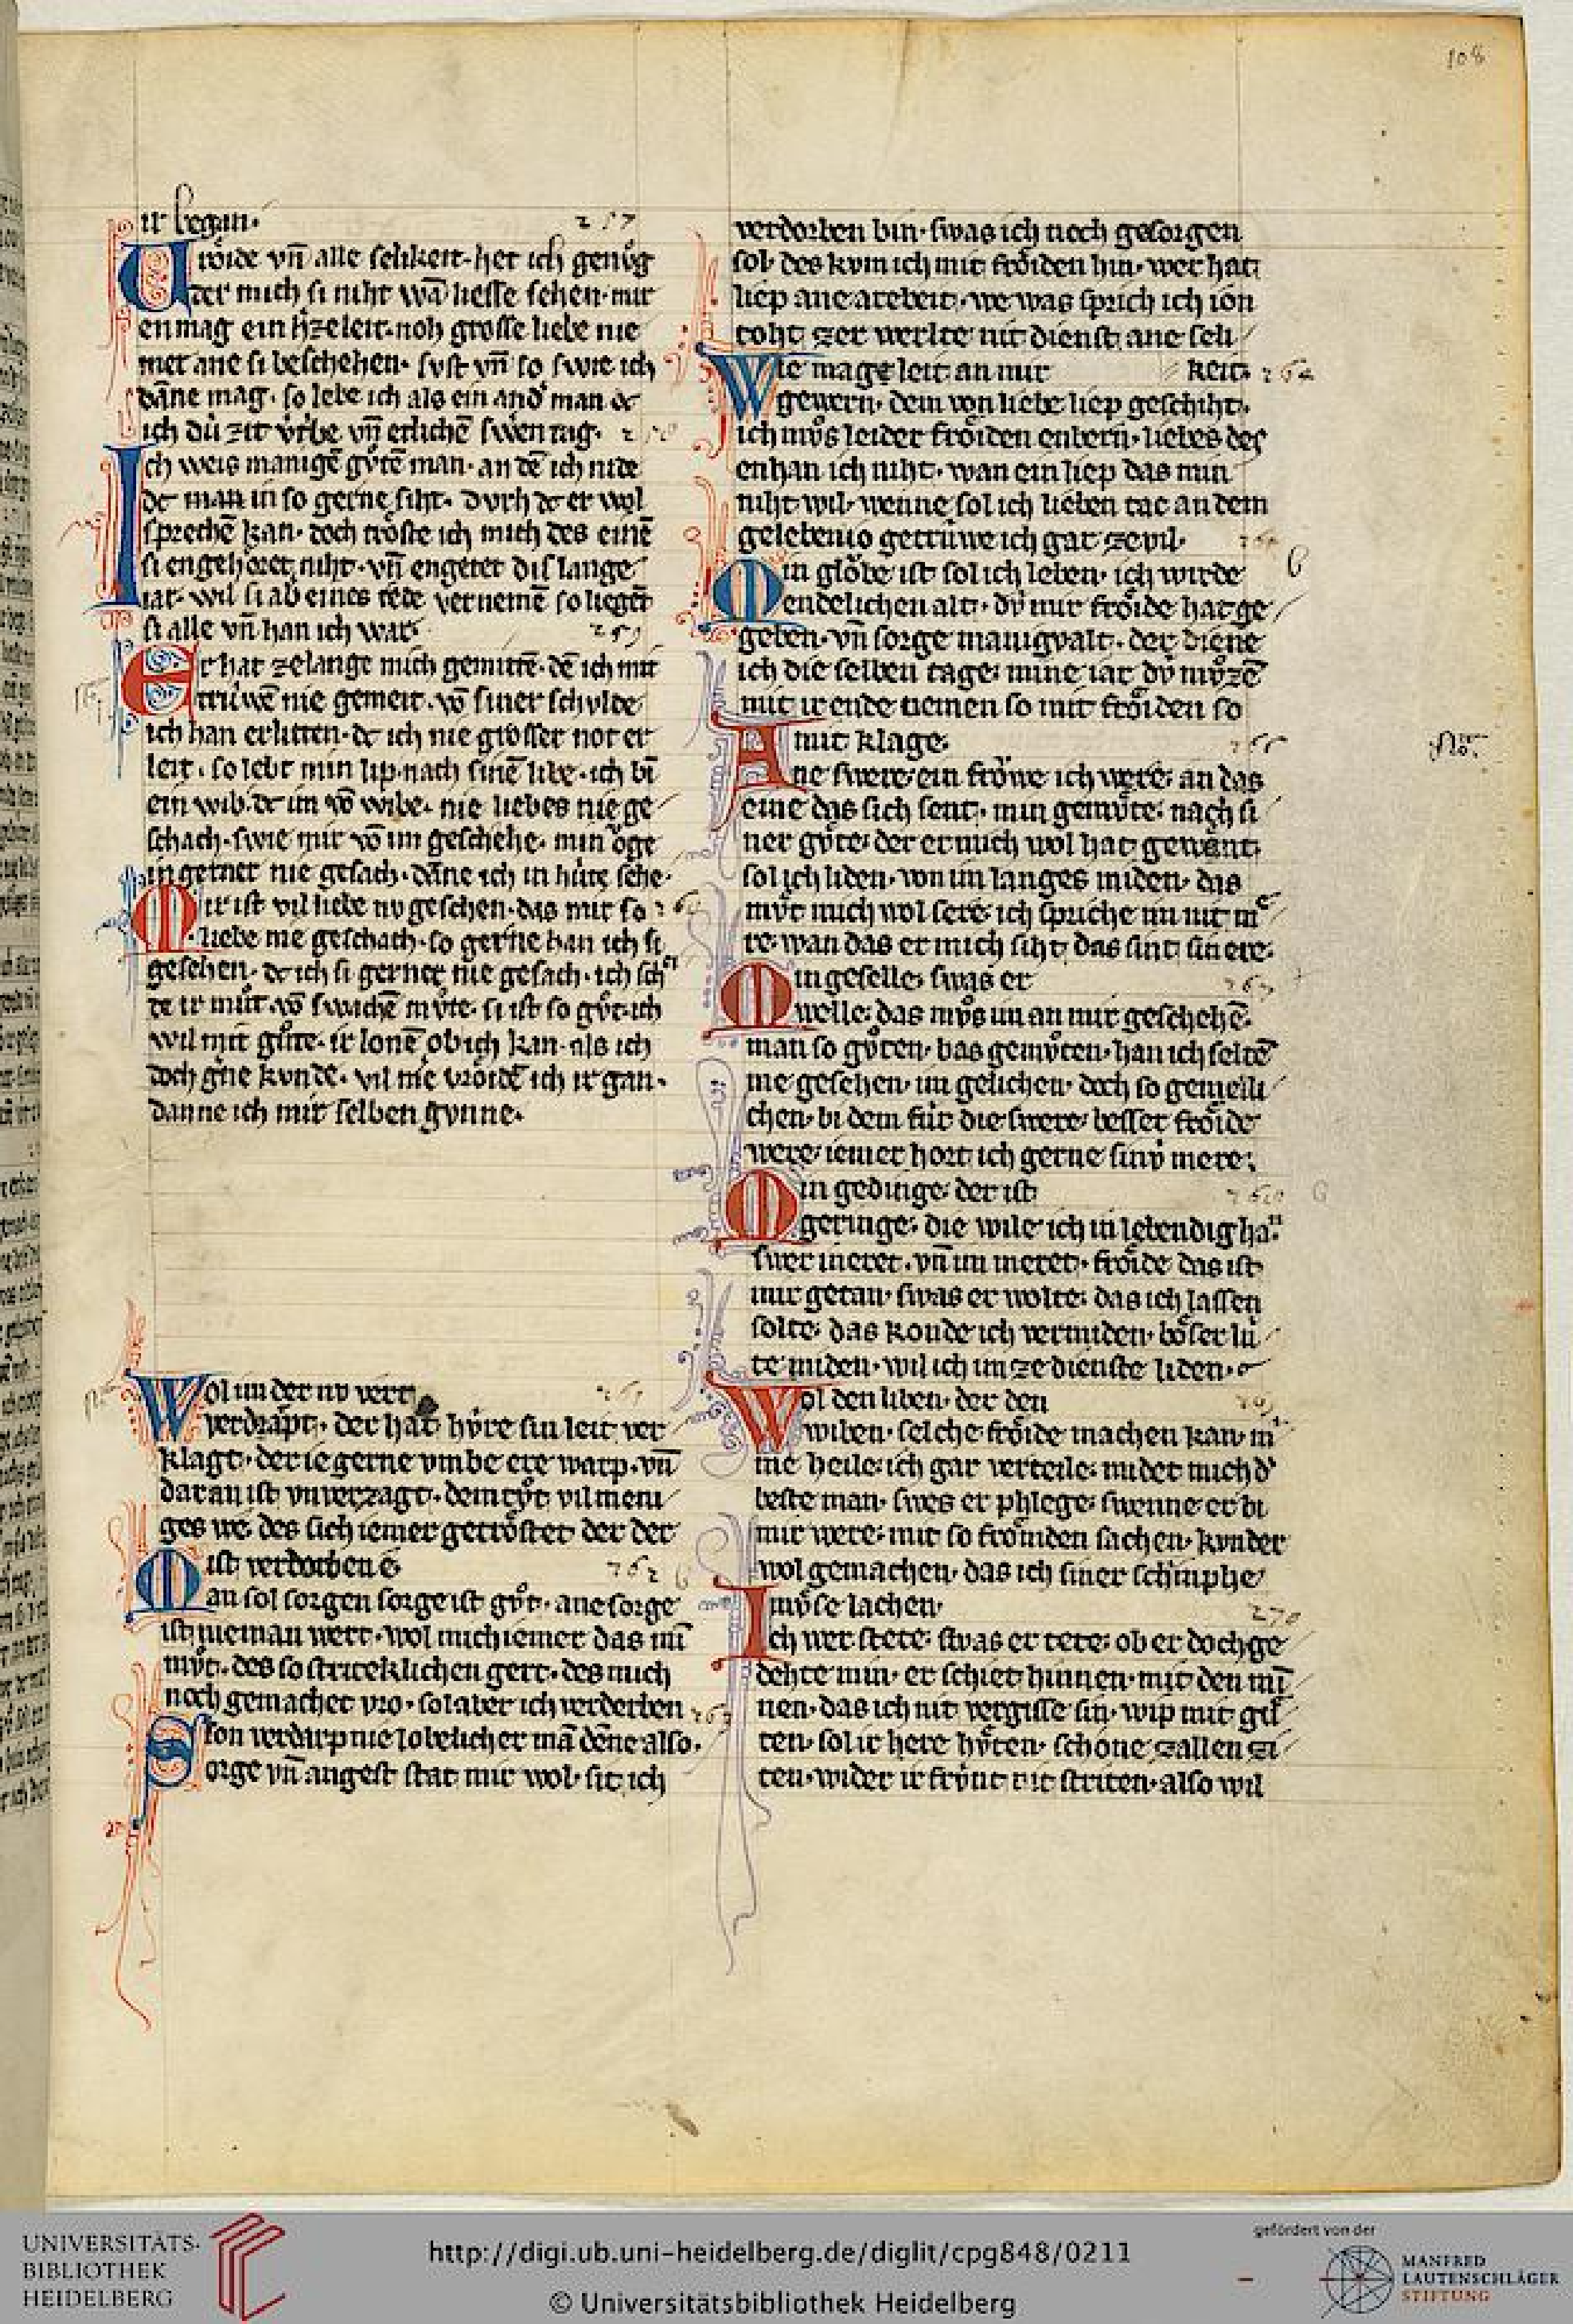 108
ir began.
257
Vröide vn̄ alle selikeit. het ich genůg
der mich si niht wā liesse sehen. mir
en mag ein h̾zeleit. noh grosse liebe nie
mer ane si beschehen. svst vn̄ so swie ich
dāne mag. so lebe ich als ein and̾ man dc
ich dú zit v̾t̾be vn̄ erliche̅ swen tag.
Ich weis manigē gůtē man. an dē ich nide
dc man in so gerne siht. dvrh dc er wol
sprechē kan. doch trôste ich mich des einē
si engehöret niht. vn̄ engetet dis lange
iar. wil si ab eines rede vernemē so liegēt
si alle vn̄ han ich war.
259
Er hat zelange mich gemitē. dē ich mit
trúwē nie gemeit. vō siner schvlde
ich han erlitten. dc ich nie grosser not er
leit. so lebt min lip. nach sinē libe. ich bī
ein wib. dc im vō wibe. nie liebes nie ge
schach. swie mir vō im geschehe. min ŏge
in gerner nie gesach. dāne ich in húte sehe.
Mir ist vil liebe nv geschen. das mir so
260
liebe nie geschach. so gerne han ich si
gesehen. dc ich si gerner nie gesach. ich sch
de ir můt. vō swachē mv̊te. si ist so gv̊t. ich
wil mit gůte. ir lonē ob ich kan. als ich
doch g̾ne kvnde. vil me vröidē ich ir gan.
danne ich mir selben gvnne.
Wol im der nv vert
261
verdarpt. der hat hv̍re sin leit ver
klagt. der ie gerne vmbe ere warp. vn̄
daran ist vnverzagt. dem tv̊t vil meni
ges we. des sich iemer getrôstet der der
ist verdorben e
262
Man sol sorgen sorge ist gv̊t. ane sorge
ist nieman wert. wol mich iemer das mī
mv̊t. des so stritecklichen gert. des mich
noch gemachet vro. sol aber ich verderben
263
son verdarp nie lobelicher mā dēne also.
Sorge vn̄ angest stat mir wol. sit ich
verdorben bin. swas ich noch gesorgen
sol. des kvm ich mit frôiden hin. wer hat
liep ane arebeit. we was sprich ich ion
toht zer werlte nit dienst ane seli
Wie mag e leit an mir
keit.
264
gewern. dem von liebe liep geschiht.
ich mv̊s leider frôiden enbern. liebes des
enhan ich niht. wan ein liep das min
niht wil. wenne sol ich lieben tac an dem
geleben io getrúwe ich gar ze vil.
Min glôbe ist sol ich leben. ich wirde
endelichen alt. dv̍ mir frôide hat ge
geben. vn̄ sorge manigvalt. der diene
ich die selben tage. mine iar dv̍ mv̊zē
mit ir ende nemen so mit frôiden so
mit klage.
266
Ane swere. ein frôwe ich were. an das
eine das sich sent. min gemv̊te. nach si
ner gv̊te. der er mich wol hat gewent.
sol ich liden. von im langes miden. das
mv̊t mich wol sere. ich spriche im nit me
re. wan das er mich siht. das sint sin ere.
Min geselle. swas er
267
welle. das mv̊s im an mir geschehē.
man so gv̊ten. bas gemv̊ten. han ich seltē
me gesehen. im gelichen. doch so gemeili
chen. bi dem fúr die swere. besser frôide
were. iemer hort ich gerne sinv̍ mere.
Min gedinge. der ist
geringe. die wile ich in lebendig han.
swer in eret. vn̄ im meret. frôide das ist
mir getan. swas er wolte. das ich lassen
solte. das konde ich vermiden. bôser lú
te niden. wil ich im ze dienste liden.
Wol den liben. der den
wiben. selche frôide machen kan. mi
me heile. ich gar verteile. midet mich d̾
beste man. swes er phlege. swenne er bi
mir were. mit so frômden sachen. kvnder
wol gemachen. das ich siner schimphe
mv̊se lachen.
270
Ich wer stete. swas er tete. ob er doch ge
dehte min. er schiet hinnen. mit den mī
nen. das ich nit vergisse sin. wip mit gů
ten. sol ir here hv̊ten. schône zallen zi
ten. wider ir frúnt nit striten. also wil
UNIVERSITÄTS-
BIBLIOTHEK
HEIDELBERG
http://digi.ub.uni-heidelberg.de/diglit/cpg848/0211
© Universitätsbibliothek Heidelberg
gefördert von der
MANFRED
LAUTENSCHLÄGER
STIFTUNG